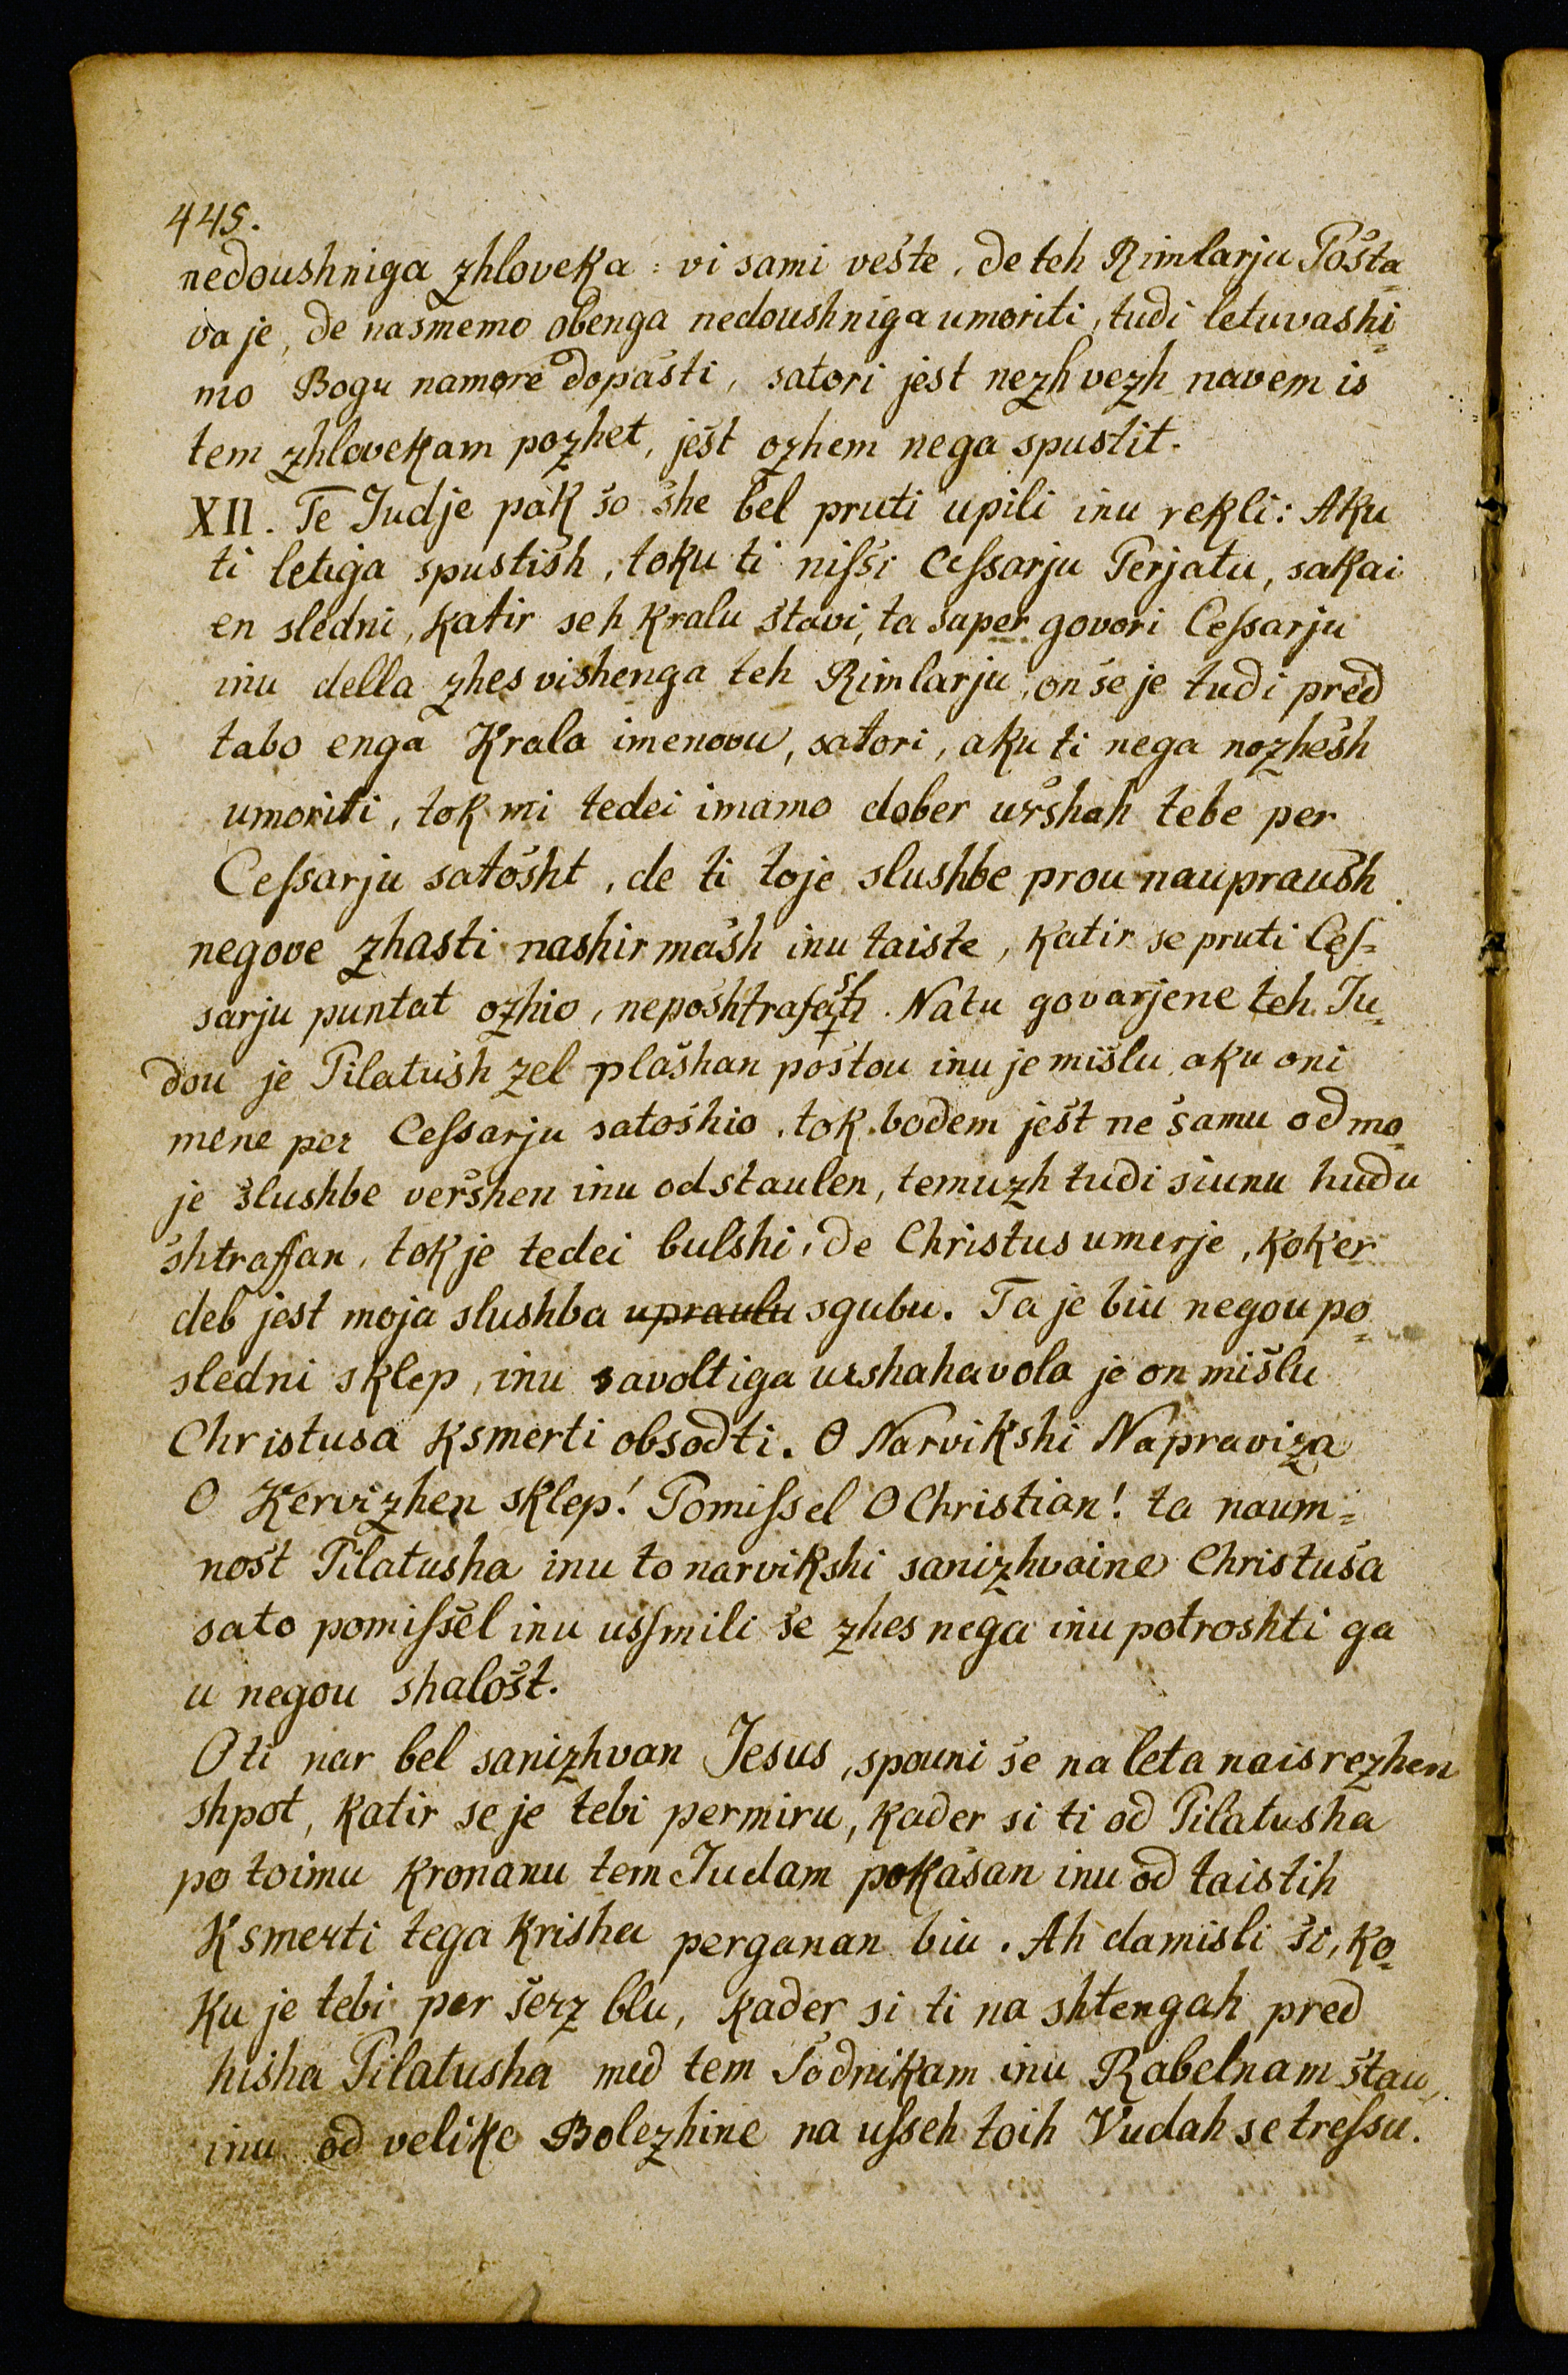 445.
nedoushniga zhloveka : vi sami vešte, de teh Rimlarju Pošta⸗
va je, de našmemo obenga nedoushniga umoriti, tudi letuvashi⸗
mo Bogu namore dopašti, satori jest nezh vezh navem is
tem zhlovekam pozhet, ješt ozhem nega spustit.
XII. Te Judje pak šo she bel pruti upili inu rekli: Aku
ti letiga spustish, toku ti niſsi Ceſsarju Perjatu, sakai
en sledni, katir se h kralu štavi, ta super govori Ceſsarju
inu della zhes vishenga teh Rimlarju, on še je tudi pred
tabo enga Krala imenovu, satori, aku ti nega nozhesh
umoriti, tok mi tedei imamo dober uršhah tebe per
Ceſsarju satošht, de ti toje slushbe prou naupraush
negove zhasti nashirmash inu taiste, katir se pruti Ceſ⸗
sarju puntat ozhio, neposhtrafash. Natu govarjene teh Ju⸗
dou je Pilatush zel plašhan poštou inu je mišlu, aku oni
mene per Ceſsarju satošhio, tok bodem ješt ne šamu od mo⸗
je šlushbe veršhen inu odstaulen, temuzh tudi siunu hudu
shtraffan, tok je tedei bulshi, de Christus umerje, koker
deb jest moja slushba ~~upraulu~~ sgubu. Ta je biu negou po⸗
sledni sklep, inu savoltiga urshaha vola je on mišlu
Christusa ksmerti obsodti. O Narvikshi Napraviza
O Kervizhen sklep! Pomiſsel O Christian! ta naum⸗
nošt Pilatusha inu to narvikshi sanizhvaine Christuša
sato pomiſsel inu usſmili še zhes nega inu potroshti ga
u negou shalošt.
O ti nar bel sanizhvan Jesus, spouni še na leta naisrezhen
shpot, katir se je tebi permiru, kader si ti od Pilatusha
po toimu kronanu tem Judam pokašan inu od taistih
Ksmerti tega krisha perganan biu. Ah damisli ši, ko⸗
ku je tebi per šerz blu, kader si ti na shtengah pred
hisha Pilatusha med tem Šodnikam inu Rabelnam štau,
inu od velike Bolezhine na uſseh toih Vudah se treſsu.